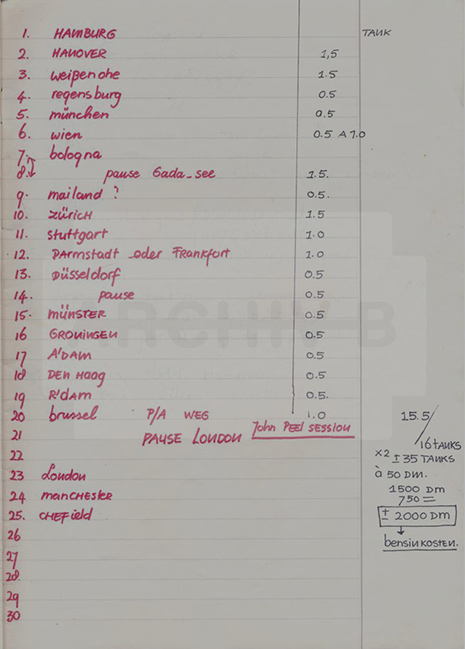 1. HAMBURG TANK
2. HANOVER 1,5
3. weißenohe 1.5
4. regensburg 0.5
5. münchen 0.5
6. wien 0.5 A 1.0
7. bologna
8. pause Gada-see 1.5.
9. mailand ? 0.5.
10. züricH 1.5
11. stuttgart 1.0
12. DARmstadt oder Frankfurt 1.0
13. Düsseldorf 0.5
14. pause 0.5
15. MÜNSTER 0.5
16 GRONINGEN 0.5
17 A'DAM 0.5
18 DEN Haag 0.5
19 R'DAM 0.5.
20 brussel P/A WEG 1.0 15.5
21 PAUSE LONDON John Peel SESSION
16 TANKS
22 x2 ± 35 TANKS
23 London à 50 DM.
24 mancHester 1500 DM
750 =
25. CHEField ± 2000 DM
26
bensinkosten.
27
28
29
30
ARCHIV-B